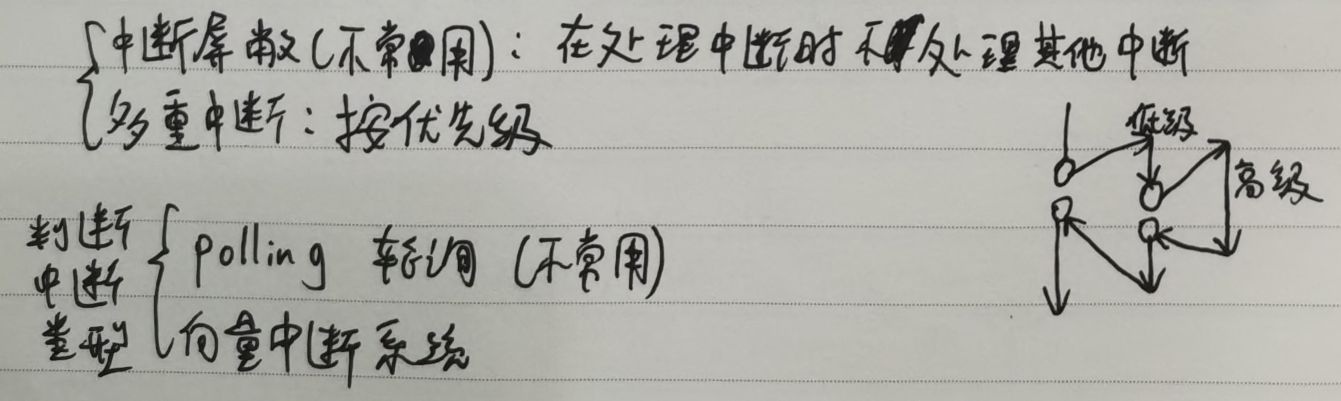 中断屏蔽(不常用):在处理中断时不处理其他中断
多重中断:按优先级
低级
高级
判断中断类型
polling 轮询 (不常用)
向量中断系统